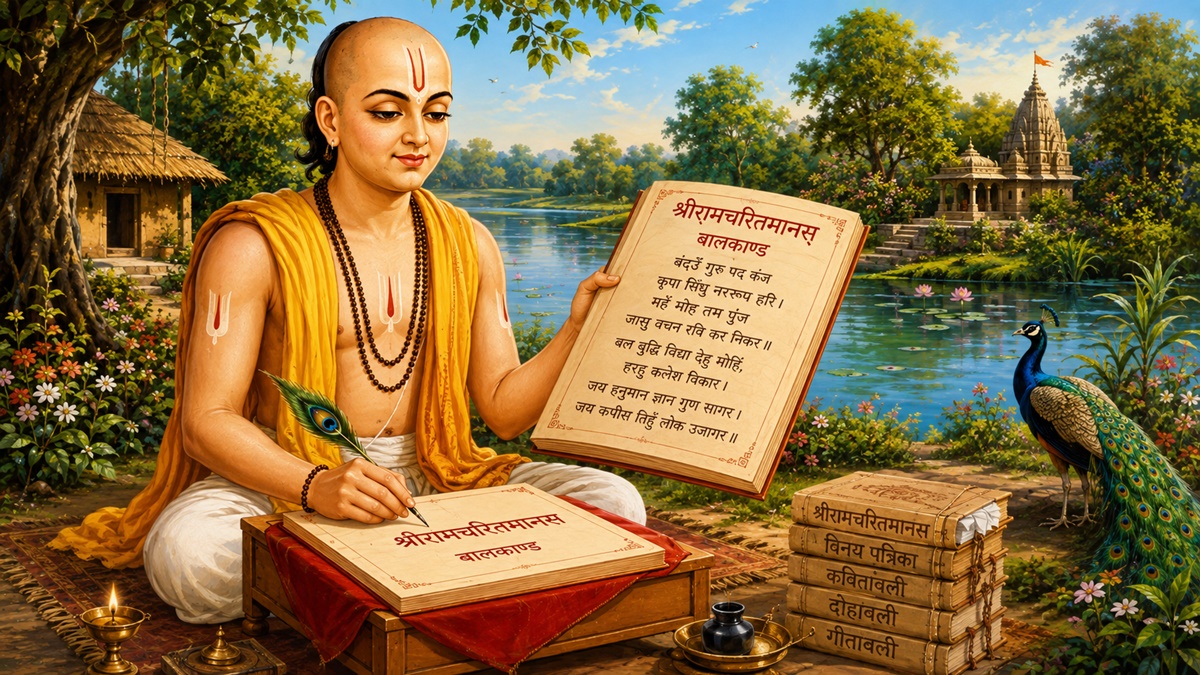 श्रीरामचरितमानस्
बालकाण्ड
बंदउँ गुरु पद कंज
कृपा सिंधु नररूप हरि।
महँ मोह तम पुंज
जासु वचन रवि कर निकर॥
बल बुद्धि विद्या देहु मोहिं,
हरहु कलेश विकार।
जय हनुमान ज्ञान गुण सागर।
जय कपीस तिहुँ लोक उजागर॥
श्रीरामचरितमानस
बालकाण्ड
श्रीरामचरितमानस
विनय पत्रिका
कवितावली
दोहावली
गीतावली